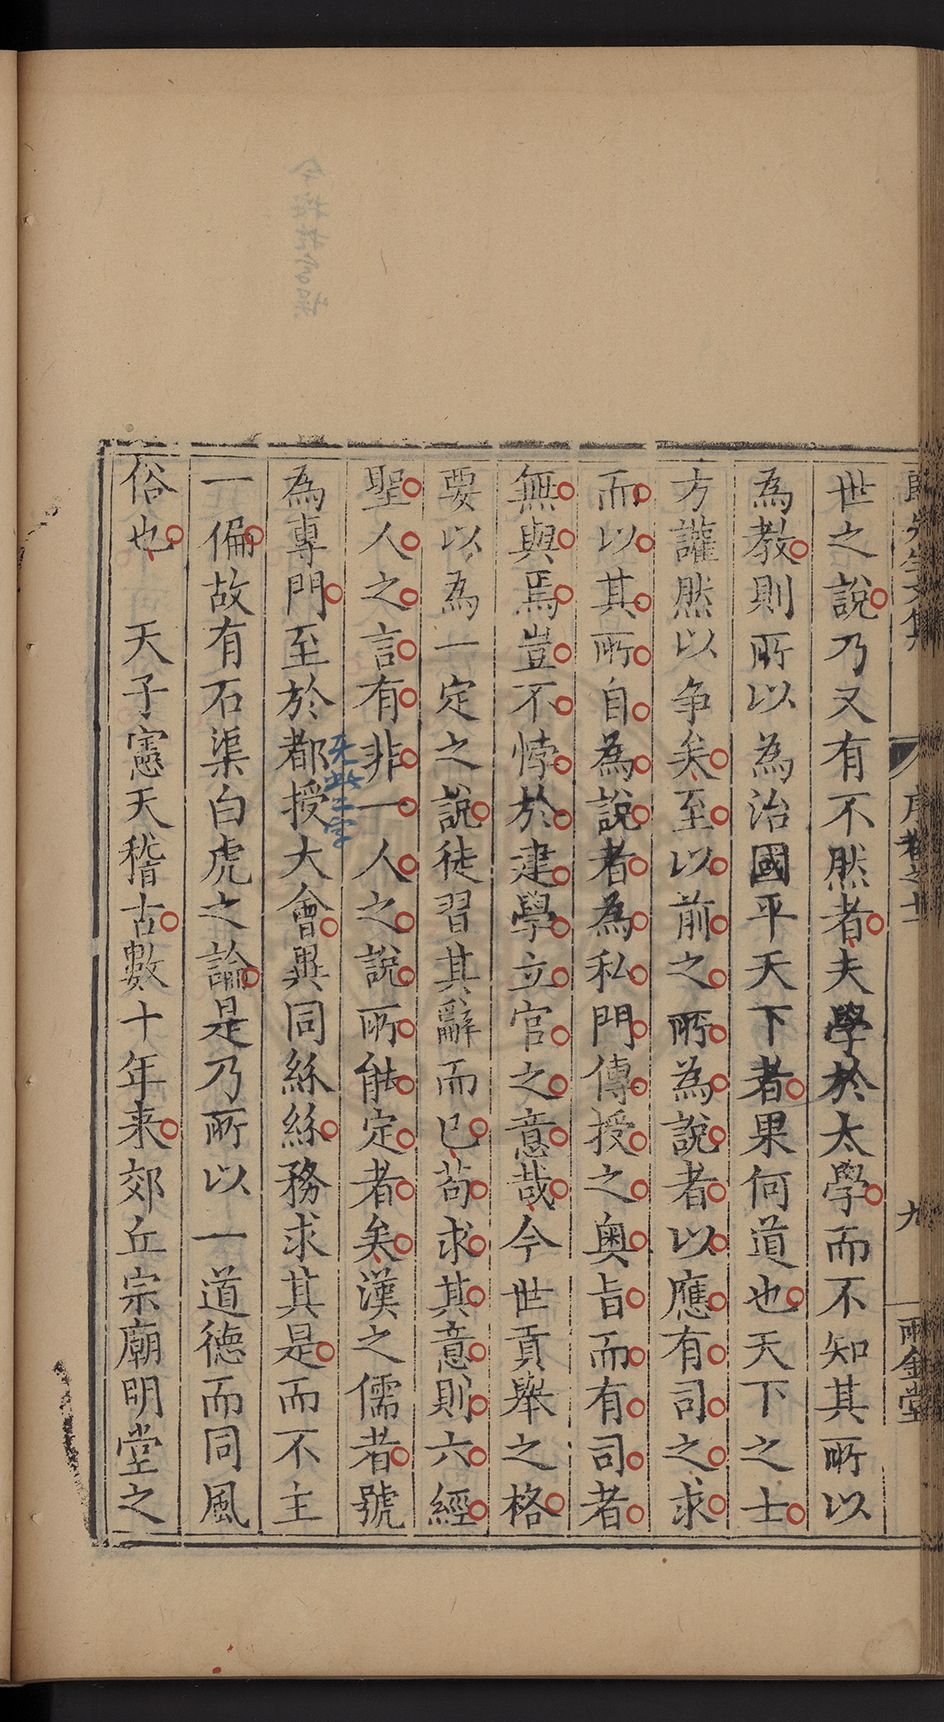 世之說乃又有不然者夫學於太學而不知其所以
為教則所以為治國平天下者果何道也天下之士
方讙然以争矣至以前之所為說者以應有司之求
而以其所自為說者為私門傳授之奥旨而有司者
無與焉豈不悖於建學立官之意哉今世貢舉之格
要以為一定之說徒習其辭而已苟求其意則六經
聖人之言有非一人之說所能定者矣漢之儒者號
為專門至於都授大會異同絲絲務求其是而不主
无此二字
一偏故有石渠白虎之論是乃所以一道德而同風
俗也天子憲天稽古數十年来郊丘宗廟明堂之
序卷之
九